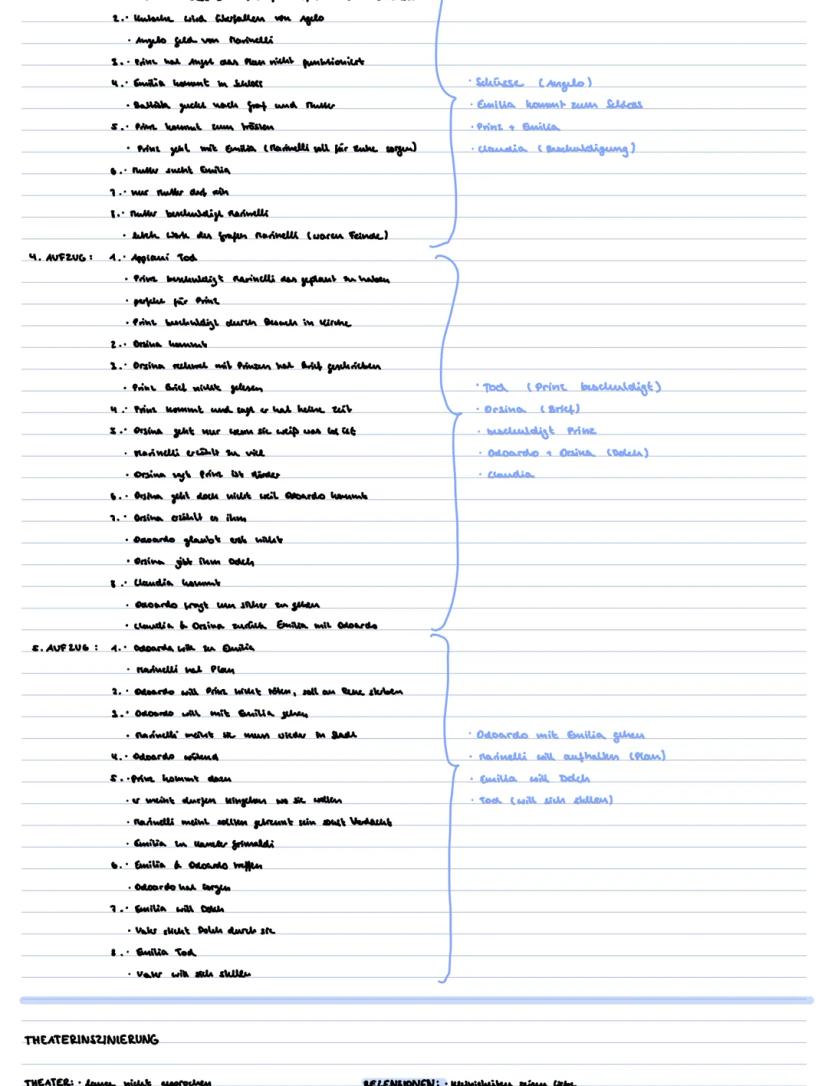 2. · Kutsche wird überfallen von Agelo
· Angelo Geld von Marinelli
3. · Prinz hat Angst das Plan nicht funktioniert
4. · Emilia kommt in Schloss
· Schüsse (Angelo)
· Battista sucht nach Graf und Mutter
· Emilia kommt zum Schloss
5. · Prinz kommt zum trösten
· Prinz + Emilia
· Prinz geht mit Emilia (Marinelli soll für Ruhe sorgen)
· Claudia (Beschuldigung)
6. · Mutter sucht Emilia
7. · nur Mutter darf rein
8. · Mutter beschuldigt Marinelli
· letzte Worte des Grafen Marinelli (waren Feinde)
4. AUFZUG: 1. · Appiani Tod
· Prinz beschuldigt Marinelli das geplant zu haben
· perfekt für Prinz
· Prinz beschuldigt durch Besuch in Kirche
2. · Orsina kommt
3. · Orsina mit Prinzen hat Brief geschrieben
· Prinz Brief nicht gelesen
· Tod (Prinz beschuldigt)
4. · Prinz kommt und sagt er hat keine Zeit
· Orsina (Brief)
5. · Orsina geht nur wenn sie weiß was los ist
· beschuldigt Prinz
· Marinelli erzählt zu viel
· Odoardo + Orsina (Dolch)
· Orsina sagt Prinz ist Mörder
· Claudia
6. · Orsina geht doch nicht weil Odoardo kommt
7. · Orsina erzählt es ihm
· Odoardo glaubt erst nicht
· Orsina gibt ihm Dolch
8. · Claudia kommt
· Odoardo fragt um sicher zu gehen
· Claudia & Orsina zurück Emilia mit Odoardo
5. AUFZUG: 1. · Odoardo will zu Emilia
· Marinelli hat Plan
2. · Odoardo will Prinz nicht töten, soll an Reue sterben
3. · Odoardo will mit Emilia gehen
· Marinelli meint sie muss wieder in Stadt
· Odoardo mit Emilia gehen
4. · Odoardo wütend
· Marinelli will aufhalten (Plan)
5. · Prinz kommt dazu
· Emilia will Dolch
· er meint dürfen hingehen wo sie wollen
· Tod (will sich stellen)
· Marinelli meint sollten getrennt sein sonst Verdacht
· Emilia zu Kanzler Grimaldi
6. · Emilia & Odoardo treffen
· Odoardo hat Sorgen
7. · Emilia will Dolch
· Vater sticht Dolch durch sie
8. · Emilia Tod
· Vater will sich stellen
THEATERINSZINIERUNG
THEATER: · nicht
REZENSIONEN: ·